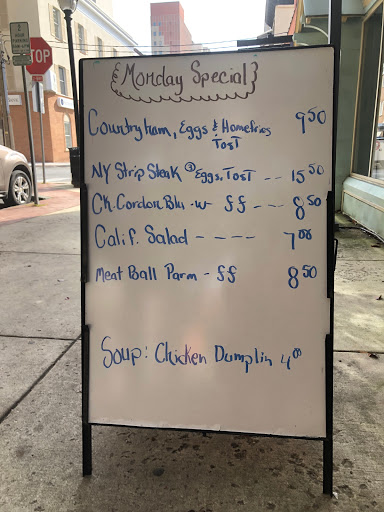 STOP
{Monday Special}
Country ham, Eggs & Homefries 9 50
Tost
NY Strip Steak ③ Eggs, Tost -- 15 50
Ck. Cordon Blu - w ff --- 8 50
Calif. Salad ----- 7 00
Meat Ball Parm - ff 8 50
Soup: Chicken Dumplin 4 00